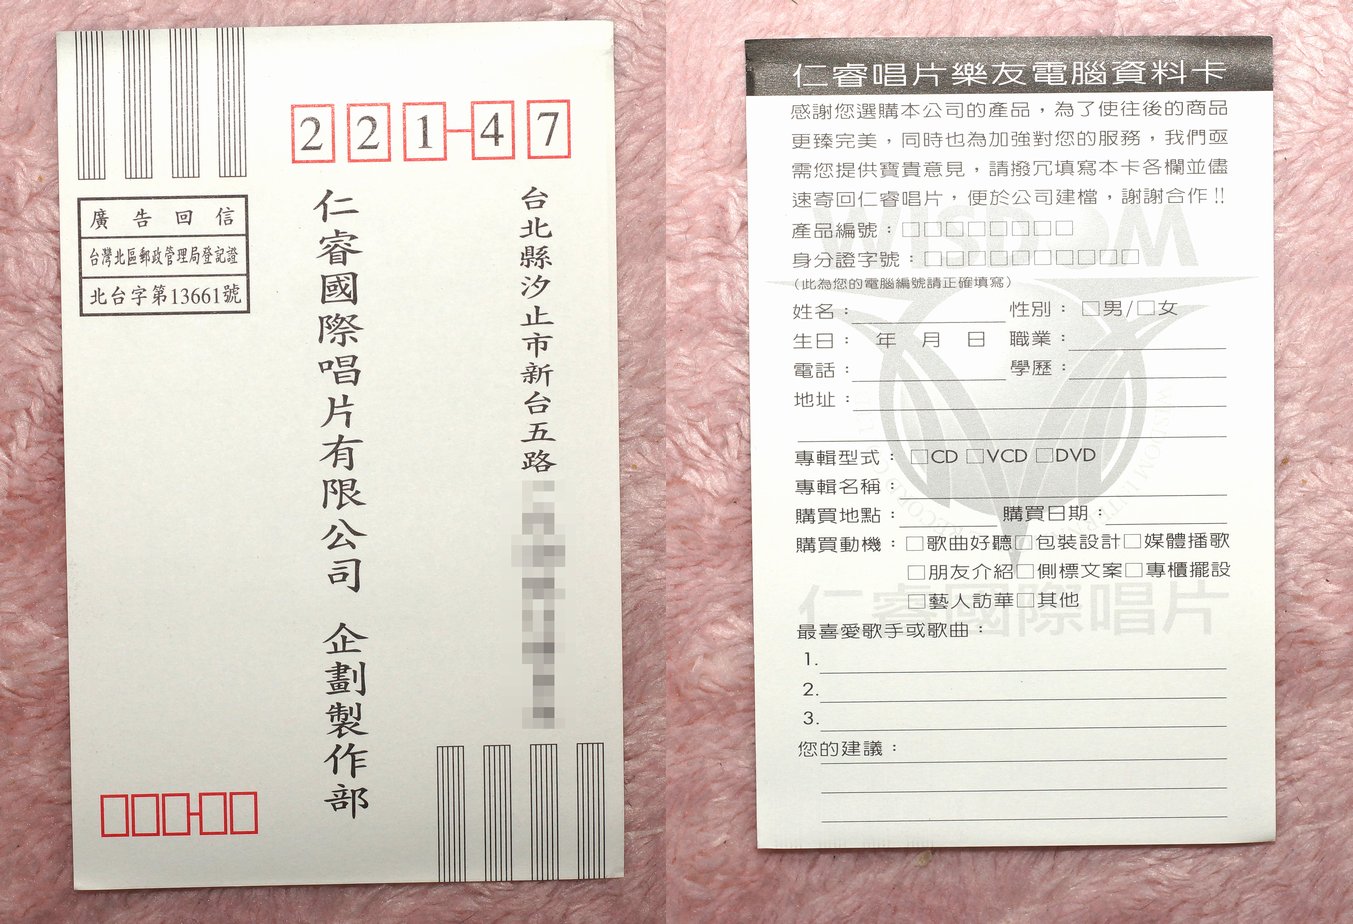 221-47
台北縣汐止市新台五路
仁睿國際唱片有限公司 企劃製作部
廣告回信
台灣北區郵政管理局登記證
北台字第13661號
仁睿唱片樂友電腦資料卡
感謝您選購本公司的產品，為了使往後的商品
更臻完美，同時也為加強對您的服務，我們亟
需您提供寶貴意見，請撥冗填寫本卡各欄並儘
速寄回仁睿唱片，便於公司建檔，謝謝合作!!
產品編號：□□□□□□□□
身分證字號：□□□□□□□□□□
(此為您的電腦編號請正確填寫)
姓名： 性別：□男/□女
生日： 年 月 日 職業：
電話： 學歷：
地址：
專輯型式：□CD □VCD □DVD
專輯名稱：
購買地點： 購買日期：
購買動機：□歌曲好聽□包裝設計□媒體播歌
□朋友介紹□側標文案□專櫃擺設
□藝人訪華□其他
最喜愛歌手或歌曲：
1.
2.
3.
您的建議：
WISDOM
仁睿國際唱片